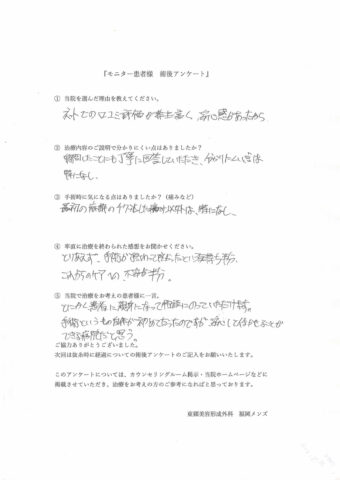 『モニター患者様 術後アンケート』
① 当院を選んだ理由を教えてください。
ネットでの口コミ評価が最も高く、安心感があったから
② 治療内容のご説明で分かりにくい点はありましたか？
質問したことにも丁寧に回答していただき、分かりにくい点は
特になし。
③ 手術時に気になる点はありましたか？（痛みなど）
最初の麻酔のチクッとした痛み以外は、特になし。
④ 率直に治療を終わられた感想をお聞かせください。
とりあえず、手術が終わってほっとしたという気持ち半分、
これからのケアへの、不安が半分。
⑤ 当院で治療をお考えの患者様に一言。
とにかく患者に親身になって相談にのっていただけます。
手術というもの自体が初めてだったのですが、安心して任せることが
できる病院だと思う。
ご協力ありがとうございました。
次回は抜糸時に経過についての術後アンケートのご記入をお願いいたします。
このアンケートについては、カウンセリングルーム掲示・当院ホームページなどに
掲載させていただき、治療をお考えの方のご参考になればと思っております。
東郷美容形成外科 福岡メンズ